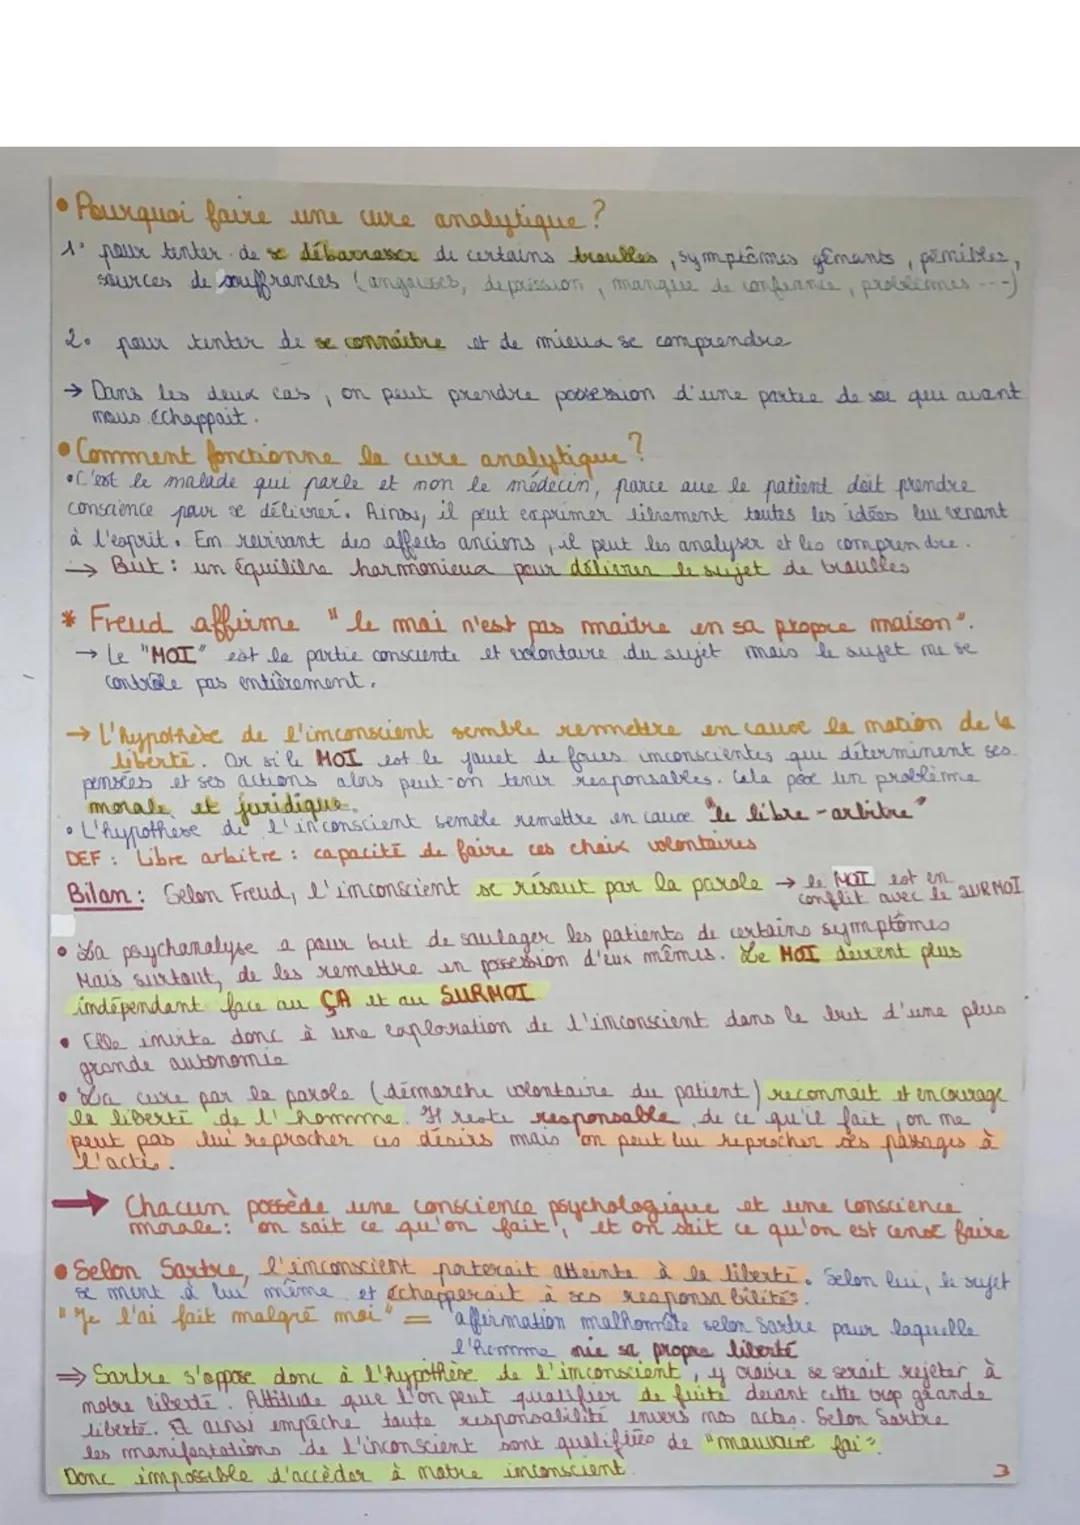 • Pourquoi faire une cure analytique ?
1° pour tenter de se débarrasser de certains troubles, symptômes gênants, pénibles,
sources de souffrances (angoisses, dépression, manque de confiance, problèmes ---)
2° pour tenter de se connaître et de mieux se comprendre
→ Dans les deux cas, on peut prendre possession d'une partie de soi qui avant
nous échappait.
• Comment fonctionne la cure analytique ?
• C'est le malade qui parle et non le médecin, parce que le patient doit prendre
conscience pour se délivrer. Ainsi, il peut exprimer librement toutes les idées lui venant
à l'esprit. En revivant des affects anciens, il peut les analyser et les comprendre.
→ But : un équilibre harmonieux pour délivrer le sujet de troubles
* Freud affirme "le moi n'est pas maitre en sa propre maison".
→ Le "MOI" est la partie consciente et volontaire du sujet mais le sujet ne se
contrôle pas entièrement.
→ L'hypothèse de l'inconscient semble remmettre en cause la notion de la
liberté. Or si le MOI est le jouet de forces inconscientes qui déterminent ses
pensées et ses actions alors peut-on tenir responsables. Cela pose un problème
morale et juridique.
• L'hypothèse de l'inconscient semble remettre en cause "le libre-arbitre"
DEF : Libre arbitre : capacité de faire ces choix volontaires
Bilan : Selon Freud, l'inconscient se résout par la parole → le MOI est en
conflit avec le SURMOI
• La psychanalyse a pour but de soulager les patients de certains symptômes
Mais surtout, de les remettre en possession d'eux mêmes. Le MOI devient plus
indépendant face au ÇA et au SURMOI
• Elle invite donc à une exploration de l'inconscient dans le but d'une plus
grande autonomie
• La cure par la parole (démarche volontaire du patient) reconnait et encourage
la liberté de l'homme. Il reste responsable de ce qu'il fait, on ne
peut pas lui reprocher ces désirs mais on peut lui reprocher ses passages à
l'acte.
→ Chacun possède une conscience psychologique et une conscience
morale : on sait ce qu'on fait, et on sait ce qu'on est censé faire
• Selon Sartre, l'inconscient porterait atteinte à la liberté. Selon lui, le sujet
se ment à lui même et échapperait à ses responsabilités.
"Je l'ai fait malgré moi" = affirmation malhonnête selon Sartre pour laquelle
l'homme nie sa propre liberté
⇒ Sartre s'oppose donc à l'hypothèse de l'inconscient, y croire se serait rejeter à
notre liberté. Attitude que l'on peut qualifier de fuite devant cette trop grande
liberté. Et ainsi empêche toute responsabilité envers nos actes. Selon Sartre
les manifestations de l'inconscient sont qualifiées de "mauvaise foi".
Donc impossible d'accèder à notre inconscient.
3